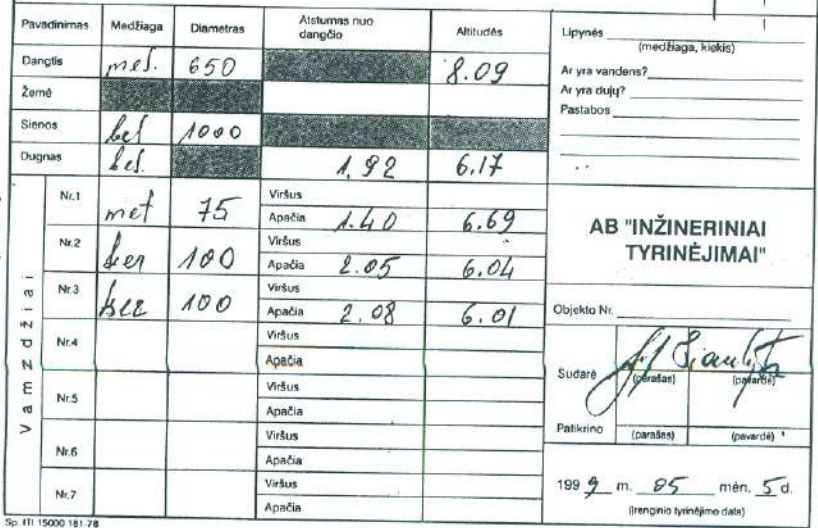 Pavadinimas Medžiaga Diametras Atstumas nuo dangčio Altitudės
Dangtis met. 650 8.09
Žemė
Sienos bet 1000
Dugnas bet. 1.92 6.17
Vamzdžiai
Nr.1 met 75 Viršus
Apačia 1.40 6.69
Nr.2 ker 100 Viršus
Apačia 2.05 6.04
Nr.3 ker 100 Viršus
Apačia 2.08 6.01
Nr.4 Viršus
Apačia
Nr.5 Viršus
Apačia
Nr.6 Viršus
Apačia
Nr.7 Viršus
Apačia
Sp. ITI 15000 181-78
Lipynės
(medžiaga, kiekis)
Ar yra vandens?
Ar yra dujų?
Pastabos
AB "INŽINERINIAI
TYRINĖJIMAI"
Objekto Nr.
Sudarė
(parašas) (pavardė)
Patikrino
(parašas) (pavardė)
199 9 m. 05 mėn. 5 d.
(Įrenginio tyrinėjimo data)